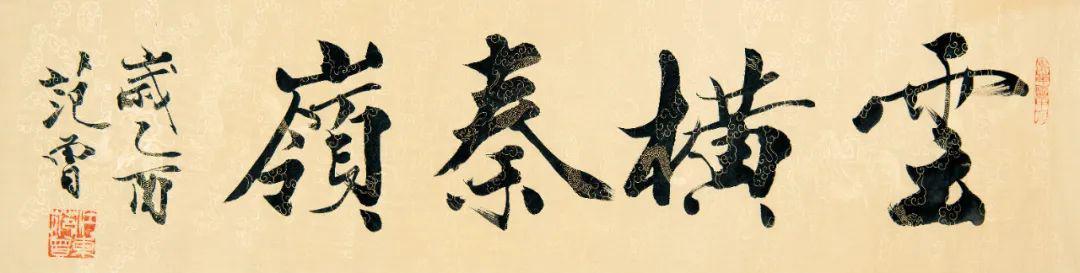 雲橫秦嶺
歲乙酉
范曾